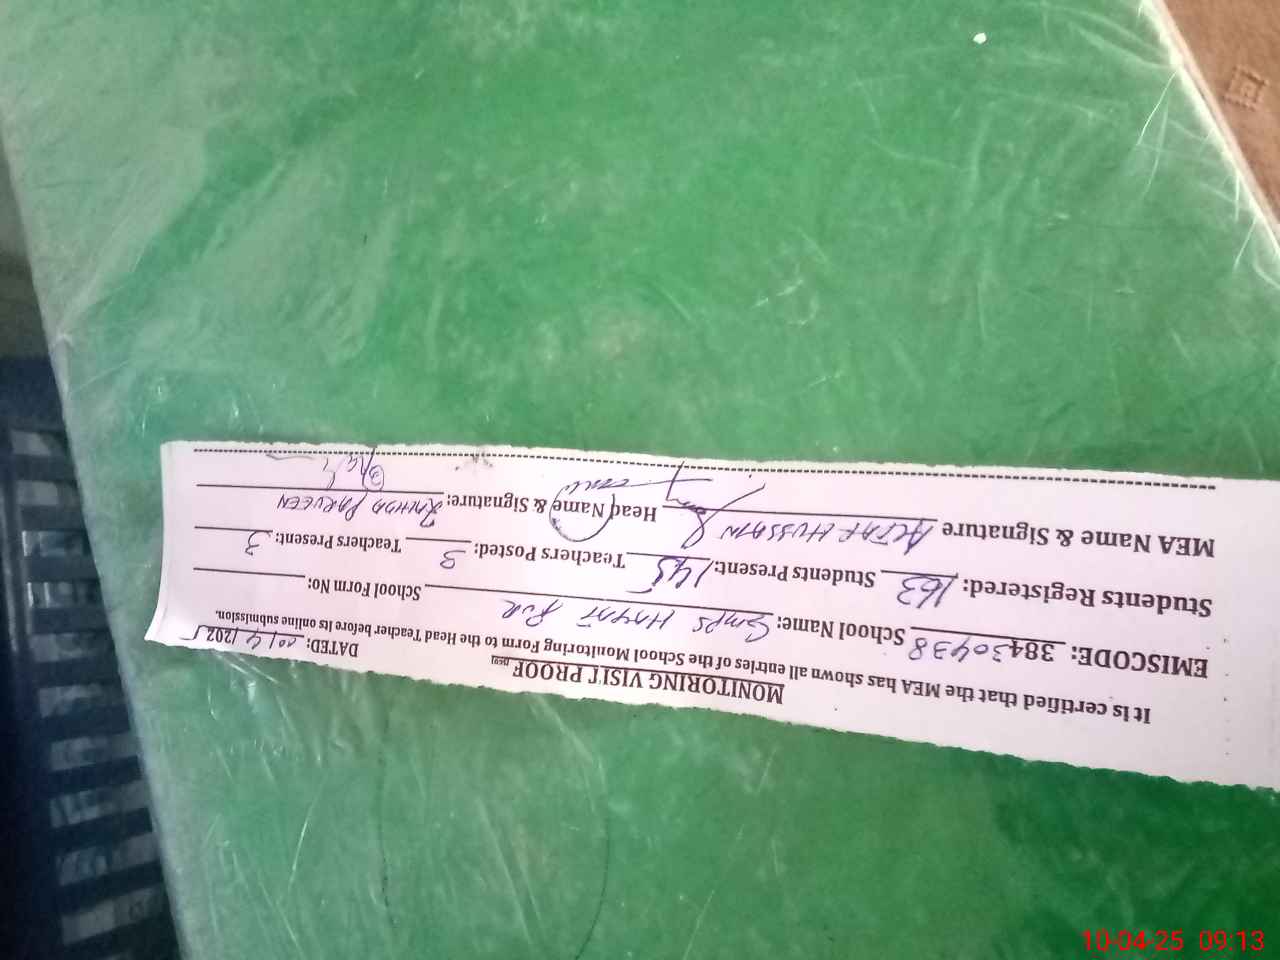 MONITORING VISIT PROOF
It is certified that the MEA has shown all entries of the School Monitoring Form to the Head Teacher before its online submission.
EMISCODE: 38430438 School Name: GMPS HAYAT PUR School Form No: DATED: 10/4/2025
Students Registered: 163 Students Present: 145 Teachers Posted: 3 Teachers Present: 3
MEA Name & Signature ALTAF HUSSAIN Head Name & Signature: PARVEEN
10-04-25 09:13